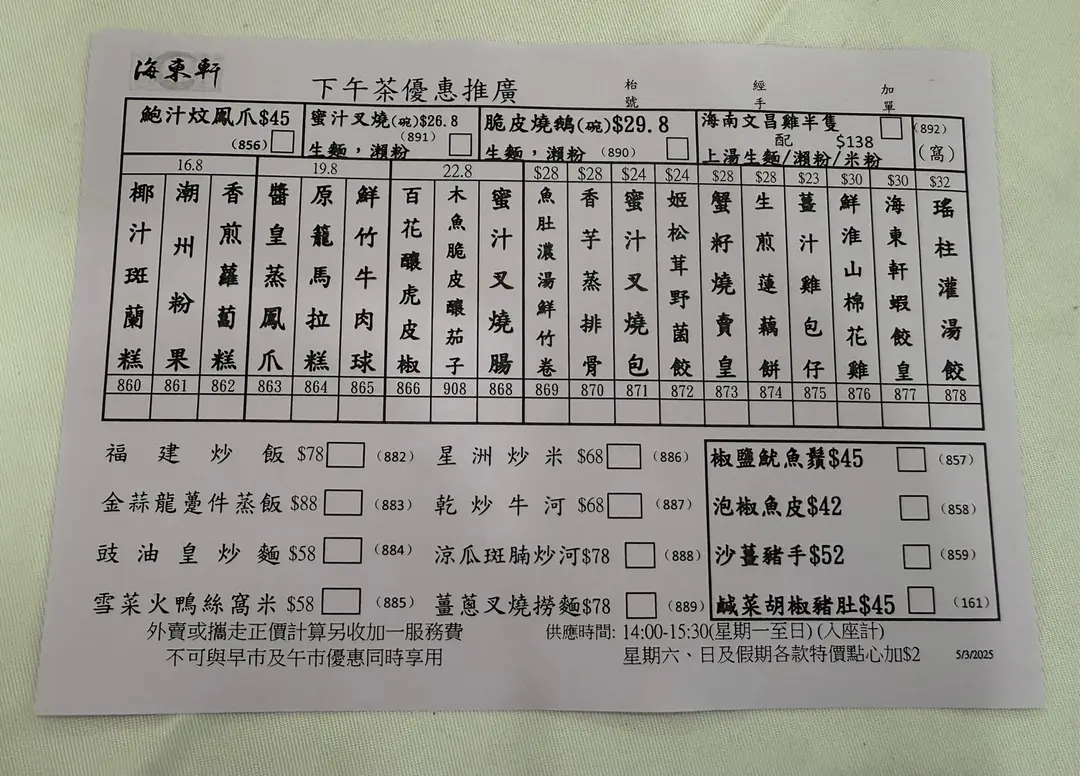 海東軒
下午茶優惠推廣
枱號
經手
加單
鮑汁炆鳳爪$45
(856)
蜜汁叉燒(碗)$26.8
(891)
生麵，瀨粉
脆皮燒鵝(碗)$29.8
生麵，瀨粉 (890)
海南文昌雞半隻
配 $138
上湯生麵/瀨粉/米粉
(892)
(窩)
16.8
19.8
22.8
$28 $28 $24 $24 $28 $28 $23 $30 $30 $32
椰汁斑蘭糕
潮州粉果
香煎蘿蔔糕
醬皇蒸鳳爪
原籠馬拉糕
鮮竹牛肉球
百花釀虎皮椒
木魚脆皮釀茄子
蜜汁叉燒腸
魚肚濃湯鮮竹卷
香芋蒸排骨
蜜汁叉燒包
姬松茸野菌餃
蟹籽燒賣皇
生煎蓮藕餅
薑汁雞包仔
鮮淮山棉花雞
海東軒蝦餃皇
瑤柱灌湯餃
860 861 862 863 864 865 866 908 868 869 870 871 872 873 874 875 876 877 878
福建炒飯 $78 (882)
金蒜龍躉件蒸飯 $88 (883)
豉油皇炒麵 $58 (884)
雪菜火鴨絲窩米 $58 (885)
星洲炒米 $68 (886)
乾炒牛河 $68 (887)
涼瓜斑腩炒河$78 (888)
薑蔥叉燒撈麵$78 (889)
椒鹽魷魚鬚$45 (857)
泡椒魚皮$42 (858)
沙薑豬手$52 (859)
鹹菜胡椒豬肚$45 (161)
外賣或攜走正價計算另收加一服務費
不可與早市及午市優惠同時享用
供應時間: 14:00-15:30(星期一至日) (入座計)
星期六、日及假期各款特價點心加$2
5/3/2025